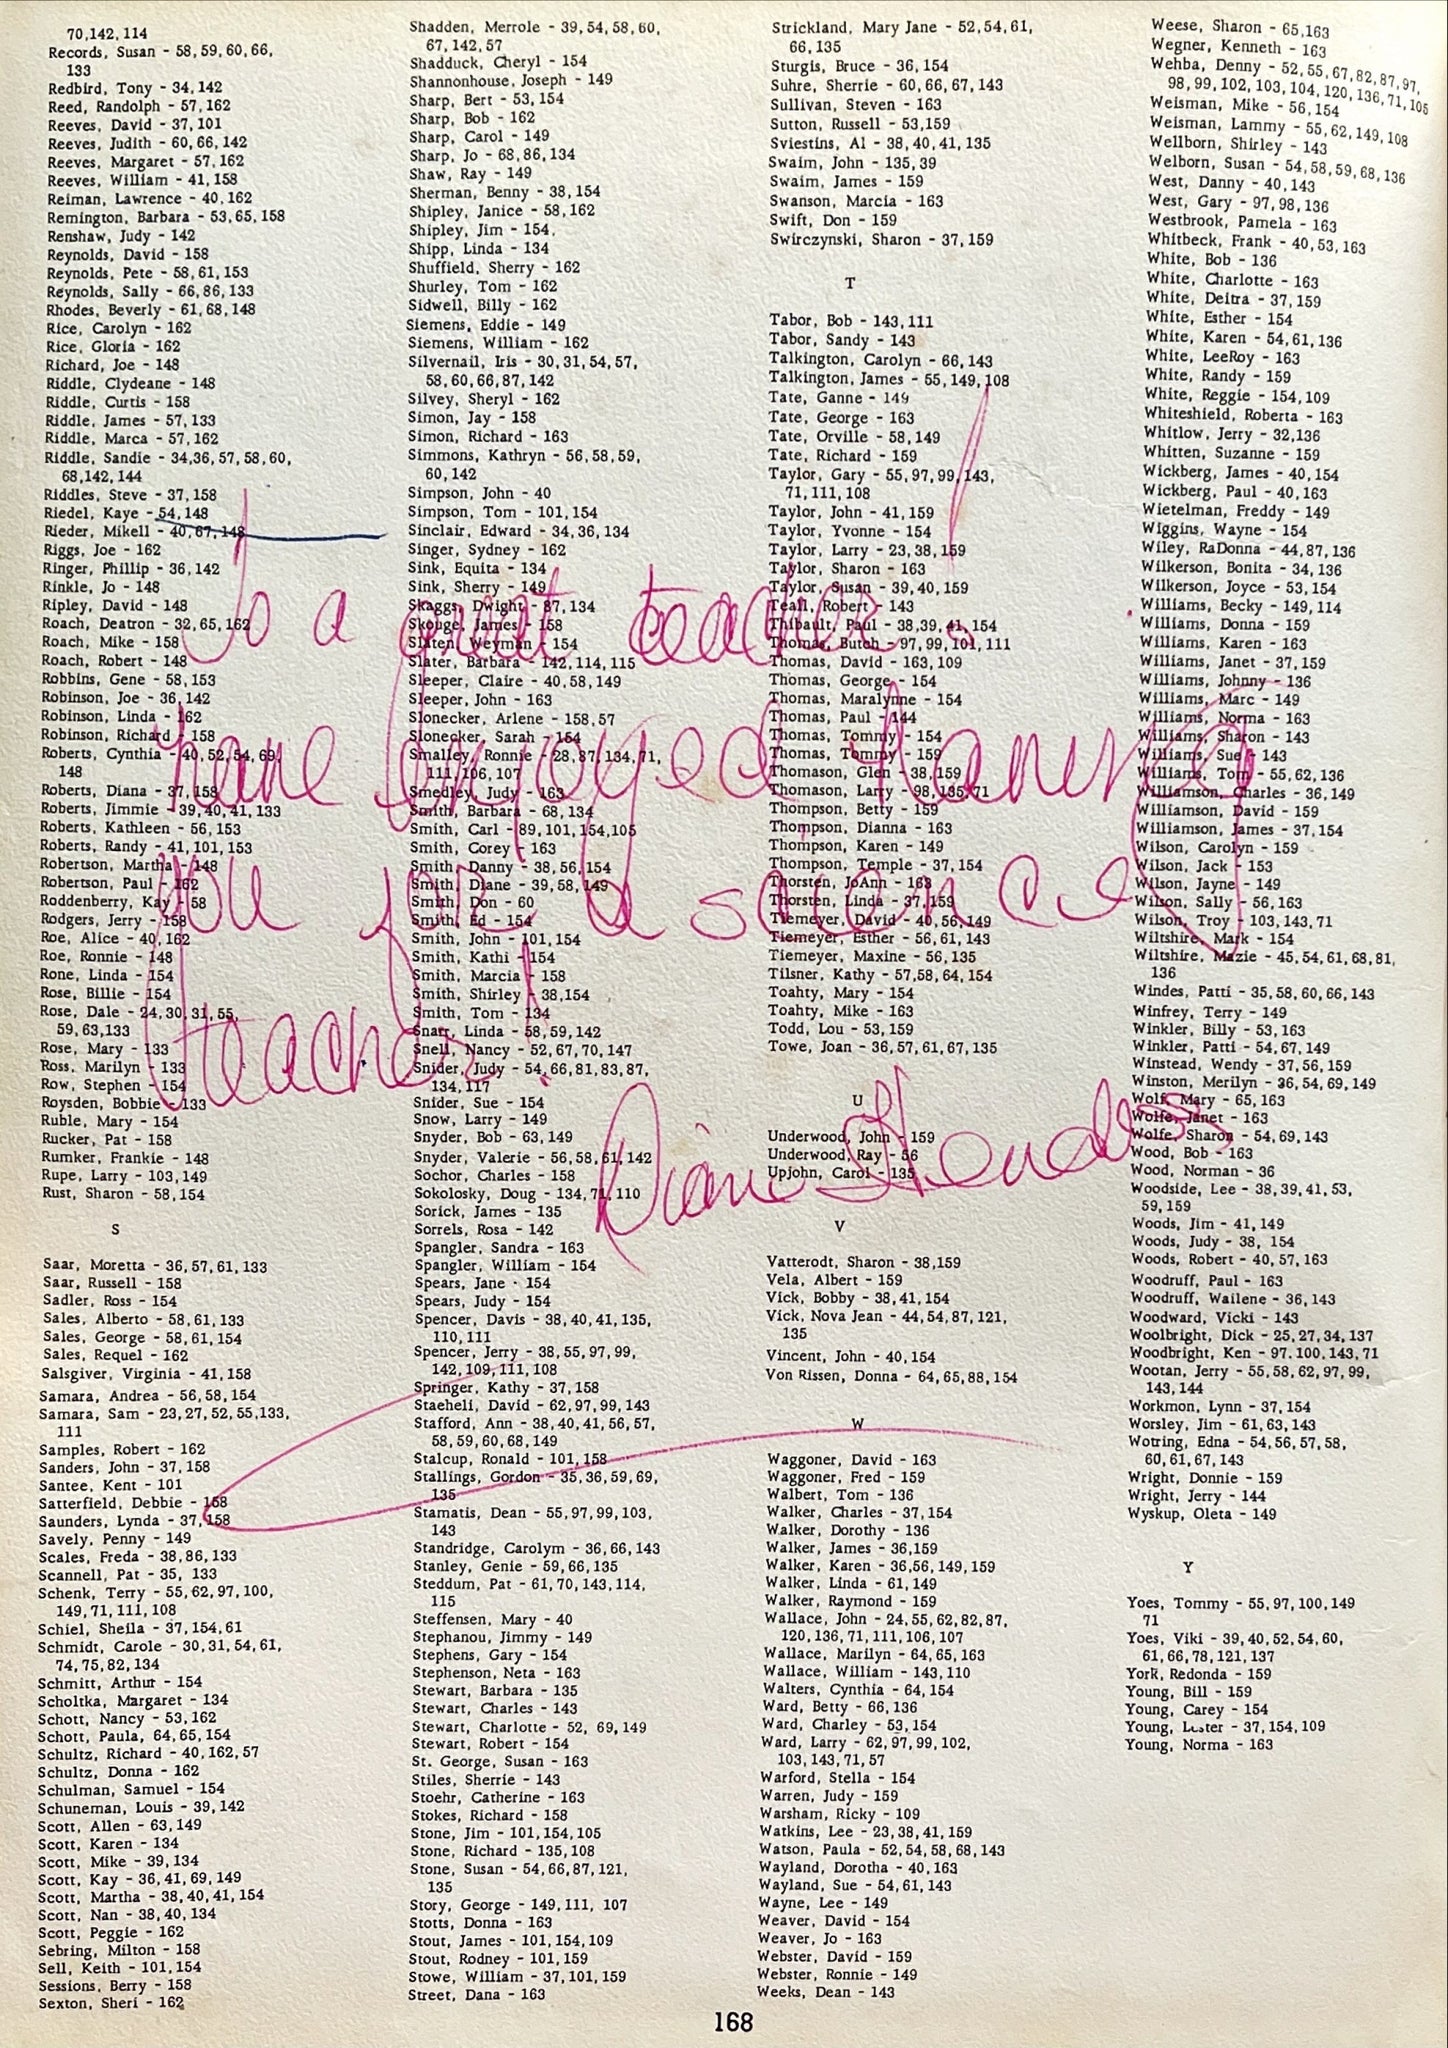 70,142,114
Records, Susan - 58,59,60,66,
133
Redbird, Tony - 34,142
Reed, Randolph - 57,162
Reeves, David - 37,101
Reeves, Judith - 60,66,142
Reeves, Margaret - 57,162
Reeves, William - 41,158
Reiman, Lawrence - 40,162
Remington, Barbara - 53,65,158
Renshaw, Judy - 142
Reynolds, David - 158
Reynolds, Pete - 58,61,153
Reynolds, Sally - 66,86,133
Rhodes, Beverly - 61,68,148
Rice, Carolyn - 162
Rice, Gloria - 162
Richard, Joe - 148
Riddle, Clydeane - 148
Riddle, Curtis - 158
Riddle, James - 57,133
Riddle, Marca - 57,162
Riddle, Sandie - 34,36,57,58,60,
68,142,144
Riddles, Steve - 37,158
Riedel, Kaye - 54,148
Rieder, Mikell - 40,67,148
Riggs, Joe - 162
Ringer, Phillip - 36,142
Rinkle, Jo - 148
Ripley, David - 148
Roach, Deatron - 32,65,162
Roach, Mike - 158
Roach, Robert - 148
Robbins, Gene - 58,153
Robinson, Joe - 36,142
Robinson, Linda - 162
Robinson, Richard - 158
Roberts, Cynthia - 40,52,54,69,
148
Roberts, Diana - 37,158
Roberts, Jimmie - 39,40,41,133
Roberts, Kathleen - 56,153
Roberts, Randy - 41,101,153
Robertson, Martha - 148
Robertson, Paul - 162
Roddenberry, Kay - 58
Rodgers, Jerry - 158
Roe, Alice - 40,162
Roe, Ronnie - 148
Rone, Linda - 154
Rose, Billie - 154
Rose, Dale - 24,30,31,55,
59,63,133
Rose, Mary - 133
Ross, Marilyn - 133
Row, Stephen - 154
Roysden, Bobbie - 133
Ruble, Mary - 154
Rucker, Pat - 158
Rumker, Frankie - 148
Rupe, Larry - 103,149
Rust, Sharon - 58,154
S
Saar, Moretta - 36,57,61,133
Saar, Russell - 158
Sadler, Ross - 154
Sales, Alberto - 58,61,133
Sales, George - 58,61,154
Sales, Requel - 162
Salsgiver, Virginia - 41,158
Samara, Andrea - 56,58,154
Samara, Sam - 23,27,52,55,133,
111
Samples, Robert - 162
Sanders, John - 37,158
Santee, Kent - 101
Satterfield, Debbie - 158
Saunders, Lynda - 37,158
Savely, Penny - 149
Scales, Freda - 38,86,133
Scannell, Pat - 35, 133
Schenk, Terry - 55,62,97,100,
149,71,111,108
Schiel, Sheila - 37,154,61
Schmidt, Carole - 30,31,54,61,
74,75,82,134
Schmitt, Arthur - 154
Scholtka, Margaret - 134
Schott, Nancy - 53,162
Schott, Paula, 64,65,154
Schultz, Richard - 40,162,57
Schultz, Donna - 162
Schulman, Samuel - 154
Schuneman, Louis - 39,142
Scott, Allen - 63,149
Scott, Karen - 134
Scott, Mike - 39,134
Scott, Kay - 36,41,69,149
Scott, Martha - 38,40,41,154
Scott, Nan - 38,40,134
Scott, Peggie - 162
Sebring, Milton - 158
Sell, Keith - 101,154
Sessions, Berry - 158
Sexton, Sheri - 162
Shadden, Merrole - 39,54,58,60,
67,142,57
Shadduck, Cheryl - 154
Shannonhouse, Joseph - 149
Sharp, Bert - 53,154
Sharp, Bob - 162
Sharp, Carol - 149
Sharp, Jo - 68,86,134
Shaw, Ray - 149
Sherman, Benny - 38,154
Shipley, Janice - 58,162
Shipley, Jim - 154,
Shipp, Linda - 134
Shuffield, Sherry - 162
Shurley, Tom - 162
Sidwell, Billy - 162
Siemens, Eddie - 149
Siemens, William - 162
Silvernail, Iris - 30,31,54,57,
58,60,66,87,142
Silvey, Sheryl - 162
Simon, Jay - 158
Simon, Richard - 163
Simmons, Kathryn - 56,58,59,
60,142
Simpson, John - 40
Simpson, Tom - 101,154
Sinclair, Edward - 34,36,134
Singer, Sydney - 162
Sink, Equita - 134
Sink, Sherry - 149
Skaggs, Dwight - 87,134
Skouge, James - 158
Slaten, Weyman - 154
Slater, Barbara - 142,114,115
Sleeper, Claire - 40,58,149
Sleeper, John - 163
Slonecker, Arlene - 158,57
Slonecker, Sarah - 154
Smalley, Ronnie - 28,87,134,71,
111,106,107
Smedley, Judy - 163
Smith, Barbara - 68,134
Smith, Carl - 89,101,154,105
Smith, Corey - 163
Smith, Danny - 38,56,154
Smith, Diane - 39,58,149
Smith, Don - 60
Smith, Ed - 154
Smith, John - 101,154
Smith, Kathi - 154
Smith, Marcia - 158
Smith, Shirley - 38,154
Smith, Tom - 134
Snarr, Linda - 58,59,142
Snell, Nancy - 52,67,70,147
Snider, Judy - 54,66,81,83,87,
134,117
Snider, Sue - 154
Snow, Larry - 149
Snyder, Bob - 63,149
Snyder, Valerie - 56,58,61,142
Sochor, Charles - 158
Sokolosky, Doug - 134,71,110
Sorick, James - 135
Sorrels, Rosa - 142
Spangler, Sandra - 163
Spangler, William - 154
Spears, Jane - 154
Spears, Judy - 154
Spencer, Davis - 38,40,41,135,
110,111
Spencer, Jerry - 38,55,97,99,
142,109,111,108
Springer, Kathy - 37,158
Staeheli, David - 62,97,99,143
Stafford, Ann - 38,40,41,56,57,
58,59,60,68,149
Stalcup, Ronald - 101,158
Stallings, Gordon - 35,36,59,69,
135
Stamatis, Dean - 55,97,99,103,
143
Standridge, Carolym - 36,66,143
Stanley, Genie - 59,66,135
Steddum, Pat - 61,70,143,114,
115
Steffensen, Mary - 40
Stephanou, Jimmy - 149
Stephens, Gary - 154
Stephenson, Neta - 163
Stewart, Barbara - 135
Stewart, Charles - 143
Stewart, Charlotte - 52, 69,149
Stewart, Robert - 154
St. George, Susan - 163
Stiles, Sherrie - 143
Stoehr, Catherine - 163
Stokes, Richard - 158
Stone, Jim - 101,154,105
Stone, Richard - 135,108
Stone, Susan - 54,66,87,121,
135
Story, George - 149,111, 107
Stotts, Donna - 163
Stout, James - 101,154,109
Stout, Rodney - 101,159
Stowe, William - 37,101,159
Street, Dana - 163
Strickland, Mary Jane - 52,54,61,
66,135
Sturgis, Bruce - 36,154
Suhre, Sherrie - 60,66,67,143
Sullivan, Steven - 163
Sutton, Russell - 53,159
Sviestins, Al - 38,40,41,135
Swaim, John - 135,39
Swaim, James - 159
Swanson, Marcia - 163
Swift, Don - 159
Swirczynski, Sharon - 37,159
T
Tabor, Bob - 143,111
Tabor, Sandy - 143
Talkington, Carolyn - 66,143
Talkington, James - 55,149,108
Tate, Ganne - 149
Tate, George - 163
Tate, Orville - 58,149
Tate, Richard - 159
Taylor, Gary - 55,97,99,143,
71,111,108
Taylor, John - 41,159
Taylor, Yvonne - 154
Taylor, Larry - 23,38,159
Taylor, Sharon - 163
Taylor, Susan - 39,40,159
Teall, Robert - 143
Thibault, Paul - 38,39,41,154
Thomas, Butch - 97,99,101,111
Thomas, David - 163,109
Thomas, George - 154
Thomas, Maralynne - 154
Thomas, Paul - 144
Thomas, Tommy - 154
Thomas, Tommy - 159
Thomason, Glen - 38,159
Thomason, Larry - 98,135,71
Thompson, Betty - 159
Thompson, Dianna - 163
Thompson, Karen - 149
Thompson, Temple - 37,154
Thorsten, JoAnn - 163
Thorsten, Linda - 37,159
Tiemeyer, David - 40,56,149
Tiemeyer, Esther - 56,61,143
Tiemeyer, Maxine - 56,135
Tilsner, Kathy - 57,58,64,154
Toahty, Mary - 154
Toahty, Mike - 163
Todd, Lou - 53,159
Towe, Joan - 36,57,61,67,135
U
Underwood, John - 159
Underwood, Ray - 56
Upjohn, Carol - 135
V
Vatterodt, Sharon - 38,159
Vela, Albert - 159
Vick, Bobby - 38,41,154
Vick, Nova Jean - 44,54,87,121,
135
Vincent, John - 40,154
Von Rissen, Donna - 64,65,88,154
W
Waggoner, David - 163
Waggoner, Fred - 159
Walbert, Tom - 136
Walker, Charles - 37,154
Walker, Dorothy - 136
Walker, James - 36,159
Walker, Karen - 36,56,149,159
Walker, Linda - 61,149
Walker, Raymond - 159
Wallace, John - 24,55,62,82,87,
120,136,71,111,106,107
Wallace, Marilyn - 64,65,163
Wallace, William - 143,110
Walters, Cynthia - 64,154
Ward, Betty - 66,136
Ward, Charley - 53,154
Ward, Larry - 62,97,99,102,
103,143,71,57
Warford, Stella - 154
Warren, Judy - 159
Warsham, Ricky - 109
Watkins, Lee - 23,38,41,159
Watson, Paula - 52,54,58,68,143
Wayland, Dorotha - 40,163
Wayland, Sue - 54,61,143
Wayne, Lee - 149
Weaver, David - 154
Weaver, Jo - 163
Webster, David - 159
Webster, Ronnie - 149
Weeks, Dean - 143
Weese, Sharon - 65,163
Wegner, Kenneth - 163
Wehba, Denny - 52,55,67,82,87,97,
98,99,102,103,104,120,136,71,105
Weisman, Mike - 56,154
Weisman, Lammy - 55,62,149,108
Wellborn, Shirley - 143
Welborn, Susan - 54,58,59,68,136
West, Danny - 40,143
West, Gary - 97,98,136
Westbrook, Pamela - 163
Whitbeck, Frank - 40,53,163
White, Bob - 136
White, Charlotte - 163
White, Deitra - 37,159
White, Esther - 154
White, Karen - 54,61,136
White, LeeRoy - 163
White, Randy - 159
White, Reggie - 154,109
Whiteshield, Roberta - 163
Whitlow, Jerry - 32,136
Whitten, Suzanne - 159
Wickberg, James - 40,154
Wickberg, Paul - 40,163
Wietelman, Freddy - 149
Wiggins, Wayne - 154
Wiley, RaDonna - 44,87,136
Wilkerson, Bonita - 34,136
Wilkerson, Joyce - 53,154
Williams, Becky - 149,114
Williams, Donna - 159
Williams, Karen - 163
Williams, Janet - 37,159
Williams, Johnny - 136
Williams, Marc - 149
Williams, Norma - 163
Williams, Sharon - 143
Williams, Sue - 143
Williams, Tom - 55,62,136
Williamson, Charles - 36,149
Williamson, David - 159
Williamson, James - 37,154
Wilson, Carolyn - 159
Wilson, Jack - 153
Wilson, Jayne - 149
Wilson, Sally - 56,163
Wilson, Troy - 103,143,71
Wiltshire, Mark - 154
Wiltshire, Mazie - 45,54,61,68,81,
136
Windes, Patti - 35,58,60,66,143
Winfrey, Terry - 149
Winkler, Billy - 53,163
Winkler, Patti - 54,67,149
Winstead, Wendy - 37,56,159
Winston, Merilyn - 36,54,69,149
Wolf, Mary - 65,163
Wolfe, Janet - 163
Wolfe, Sharon - 54,69,143
Wood, Bob - 163
Wood, Norman - 36
Woodside, Lee - 38,39,41,53,
59,159
Woods, Jim - 41,149
Woods, Judy - 38, 154
Woods, Robert - 40,57,163
Woodruff, Paul - 163
Woodruff, Wailene - 36,143
Woodward, Vicki - 143
Woolbright, Dick - 25,27,34,137
Woodbright, Ken - 97,100,143,71
Wootan, Jerry - 55,58,62,97,99,
143,144
Workmon, Lynn - 37,154
Worsley, Jim - 61,63,143
Wotring, Edna - 54,56,57,58,
60,61,67,143
Wright, Donnie - 159
Wright, Jerry - 144
Wyskup, Oleta - 149
Y
Yoes, Tommy - 55,97,100,149
71
Yoes, Viki - 39,40,52,54,60,
61,66,78,121,137
York, Redonda - 159
Young, Bill - 159
Young, Carey - 154
Young, Lester - 37,154,109
Young, Norma - 163
To a great teacher.
I have enjoyed having
you for a science
teacher!
Diane
168